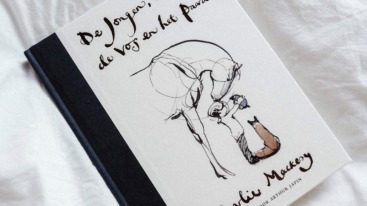 De Jongen,
de Vos en het Paard
Charlie Mackesy
DOOR ARTHUR JAPIN